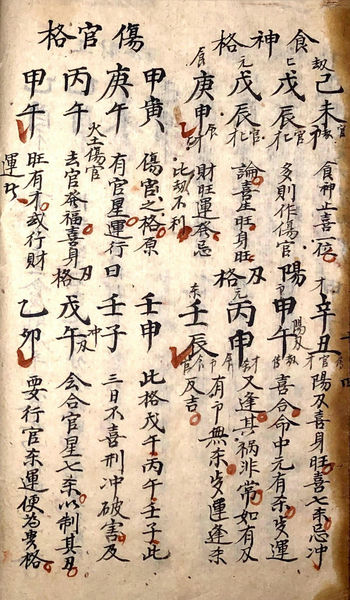 食神格
己未 食神止喜一位
戊辰 多則作傷官
戊辰 論喜生旺身旺
庚申 財旺運發忌
比劫不利
傷官格
甲寅 傷官之格原
庚午 有官星運行日
火土傷官
丙午 去官發福喜身
甲午 旺有才或行財
運
陽刃格
辛丑 陽刃喜身旺喜七杀忌冲
甲午 喜合命中元有杀歲運
丙申 又逢其祸非常如有刃
壬辰 有刃無杀歲運逢杀
反吉
刃格
壬申 此格戊午丙午壬子此
壬子 三日不喜刑冲破害及
戊午 会合官星七杀以制其刃
乙卯 要行官杀運便為貴格